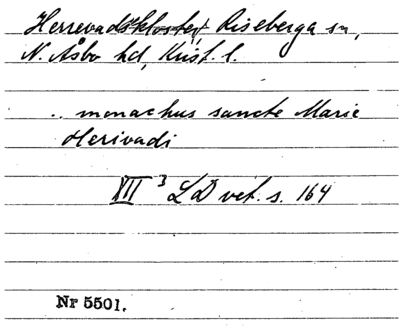 Herrevadskloster, Riseberga sn,
N. Åsbo hd, Krist. l.
.. monachus sancte Marie
Herivadi
XII 3 LD vet. s. 164
Nr 5501.